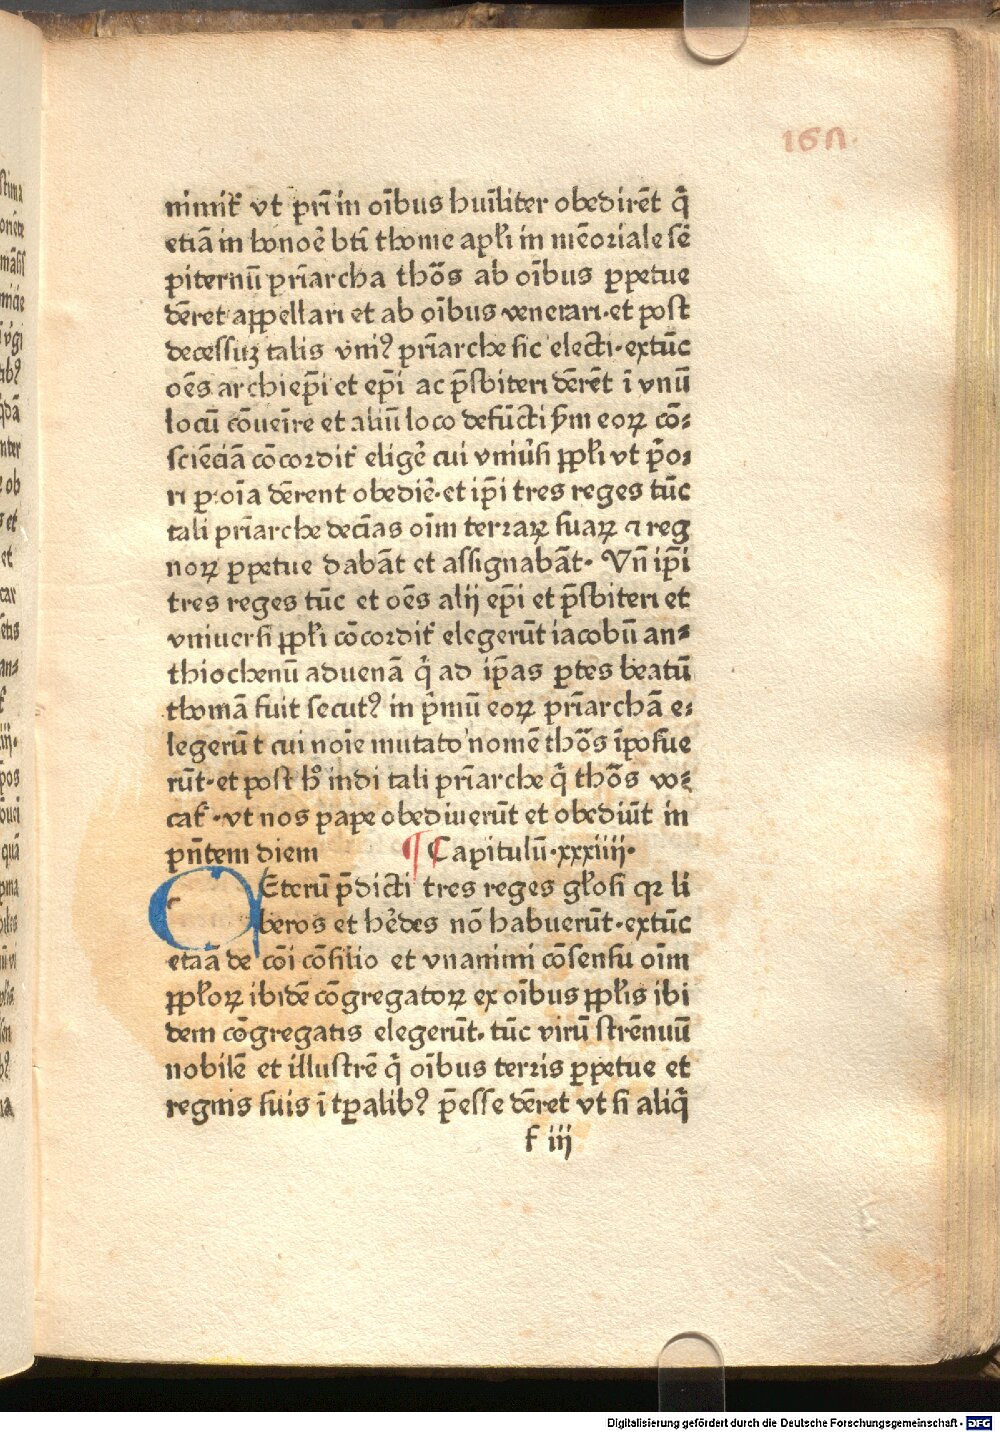 167.
nimit̄ vt pr̄i in oībus huīliter obedirēt q̄
etiā in honoē bt̄i thome apl̄i in mēoriale sē
piternū pr̄iarcha thōs ab oībus ꝑpetue
dēret appellari et ab oībus venerari·et post
decessuꝫ talis vniꝰ pr̄iarche sic electi·extūc
oēs archiep̄i et ep̄i ac p̄sbiteri dērēt ī vnū
locū cōueīre et aliū loco defūcti
eoꝝ cō⸗
sciēciā cōcordit̄ eligē cui vniūsi ppl̄i vt p̄o⸗
ri p oīa dērent obediē·et ip̄i tres reges tūc
tali pr̄iarche decīas oīm terraꝝ suaꝝ ⁊ reg
noꝝ ꝑpetue dabāt et assignabāt· Vn̄ ip̄i
tres reges tūc et oēs alij ep̄i et p̄sbiteri et
vniuersi ppl̄i cōcordit̄ elegerūt iacobū an⸗
thiochenū aduenā q̄ ad ip̄as ꝑtes beatū
thomā fuit secutꝰ in p̄mū eoꝝ pr̄iarchā e⸗
legerūt cui noīe mutato nomē thōs īposue
rūt·et post h̄ indi tali pr̄iarche q̄ thōs vo⸗
cat̄·vt nos pape obediuerūt et obediūt in
pn̄tem diem ¶ Capitulū·xxxiiij·
CEterū p̄dicti tres reges gl̄osi qꝛ li
beros et hēdes nō habuerūt·extūc
etaā de cōi cōsilio et vnanimi cōsensu oīm
ppl̄oꝝ ibidē cōgregatoꝝ ex oībus ppl̄is ibi
dem cōgregatis elegerūt· tūc virū strēnuū
nobilē et illustrē q̄ oībus terris ꝑpetue et
regnis suis ī tꝑalibꝰ p̄esse dēret vt si aliq̄
f iij
Digitalisierung gefördert durch die Deutsche Forschungsgemeinschaft - DFG